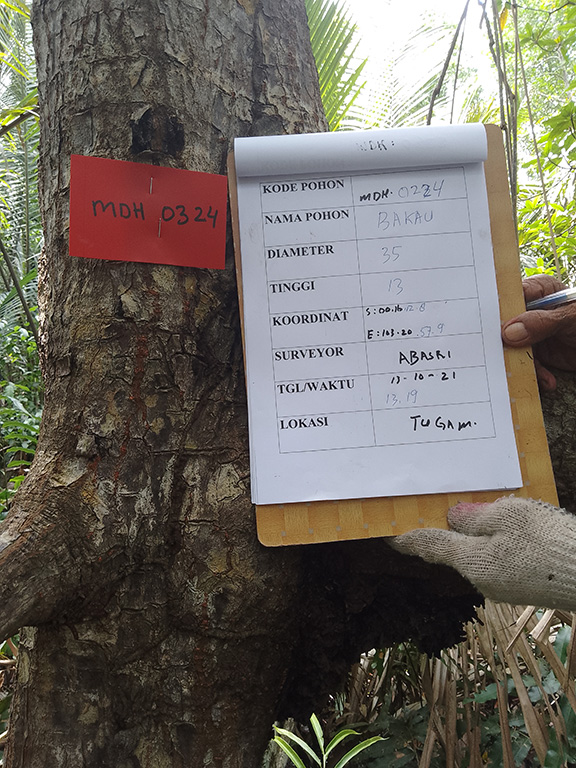 MDH 0324
KODE POHON MDH. 0224
NAMA POHON BAKAU
DIAMETER 35
TINGGI 13
KOORDINAT S : 00.16.12.8
E : 103.20.57.9
SURVEYOR ABASRI
TGL/WAKTU 13-10-21
13.19
LOKASI TUGAM.